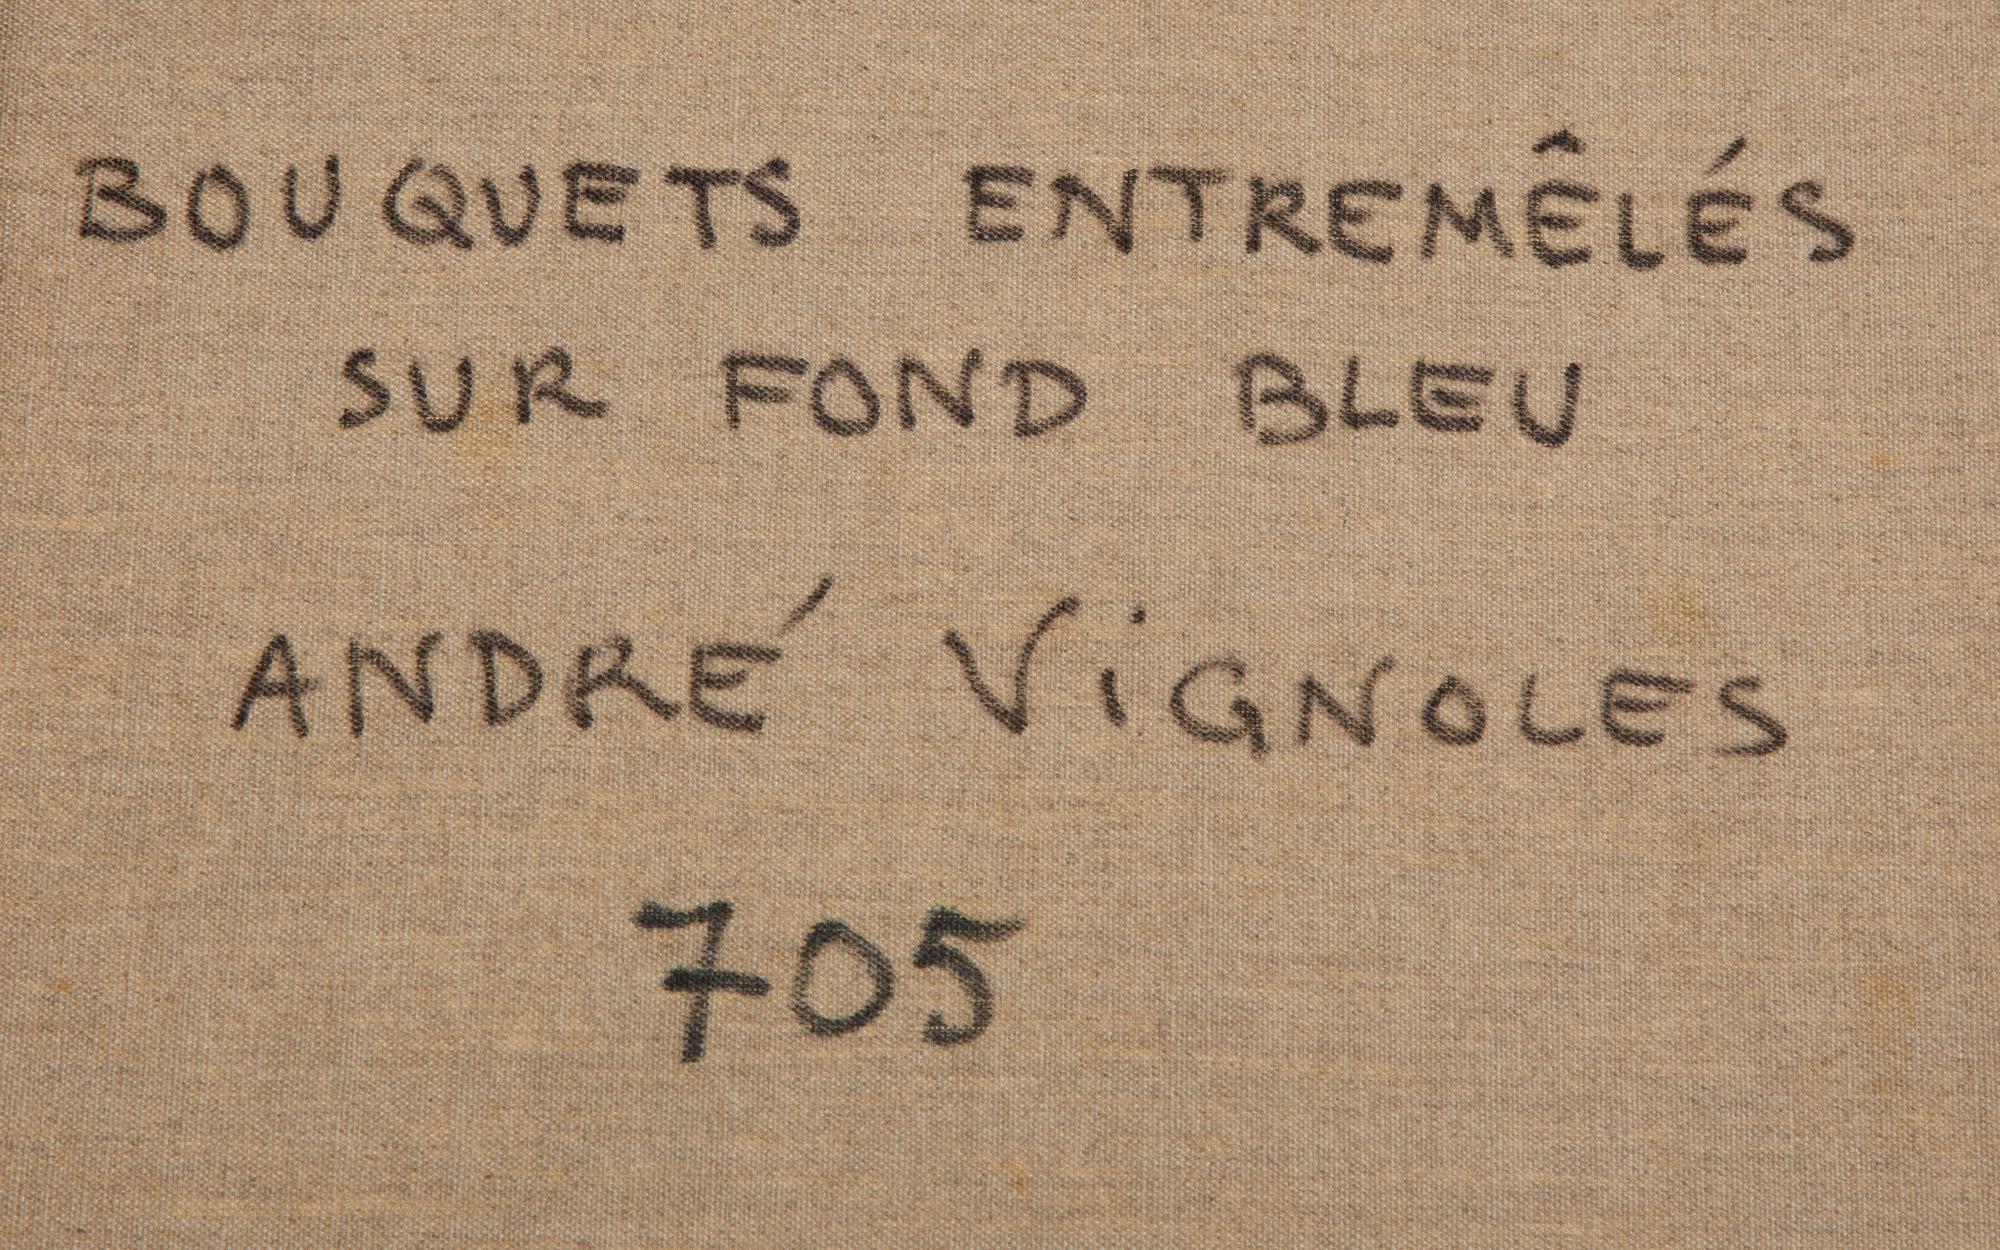 BOUQUETS ENTREMÊLÉS
SUR FOND BLEU
ANDRÉ ViGNOLES
705